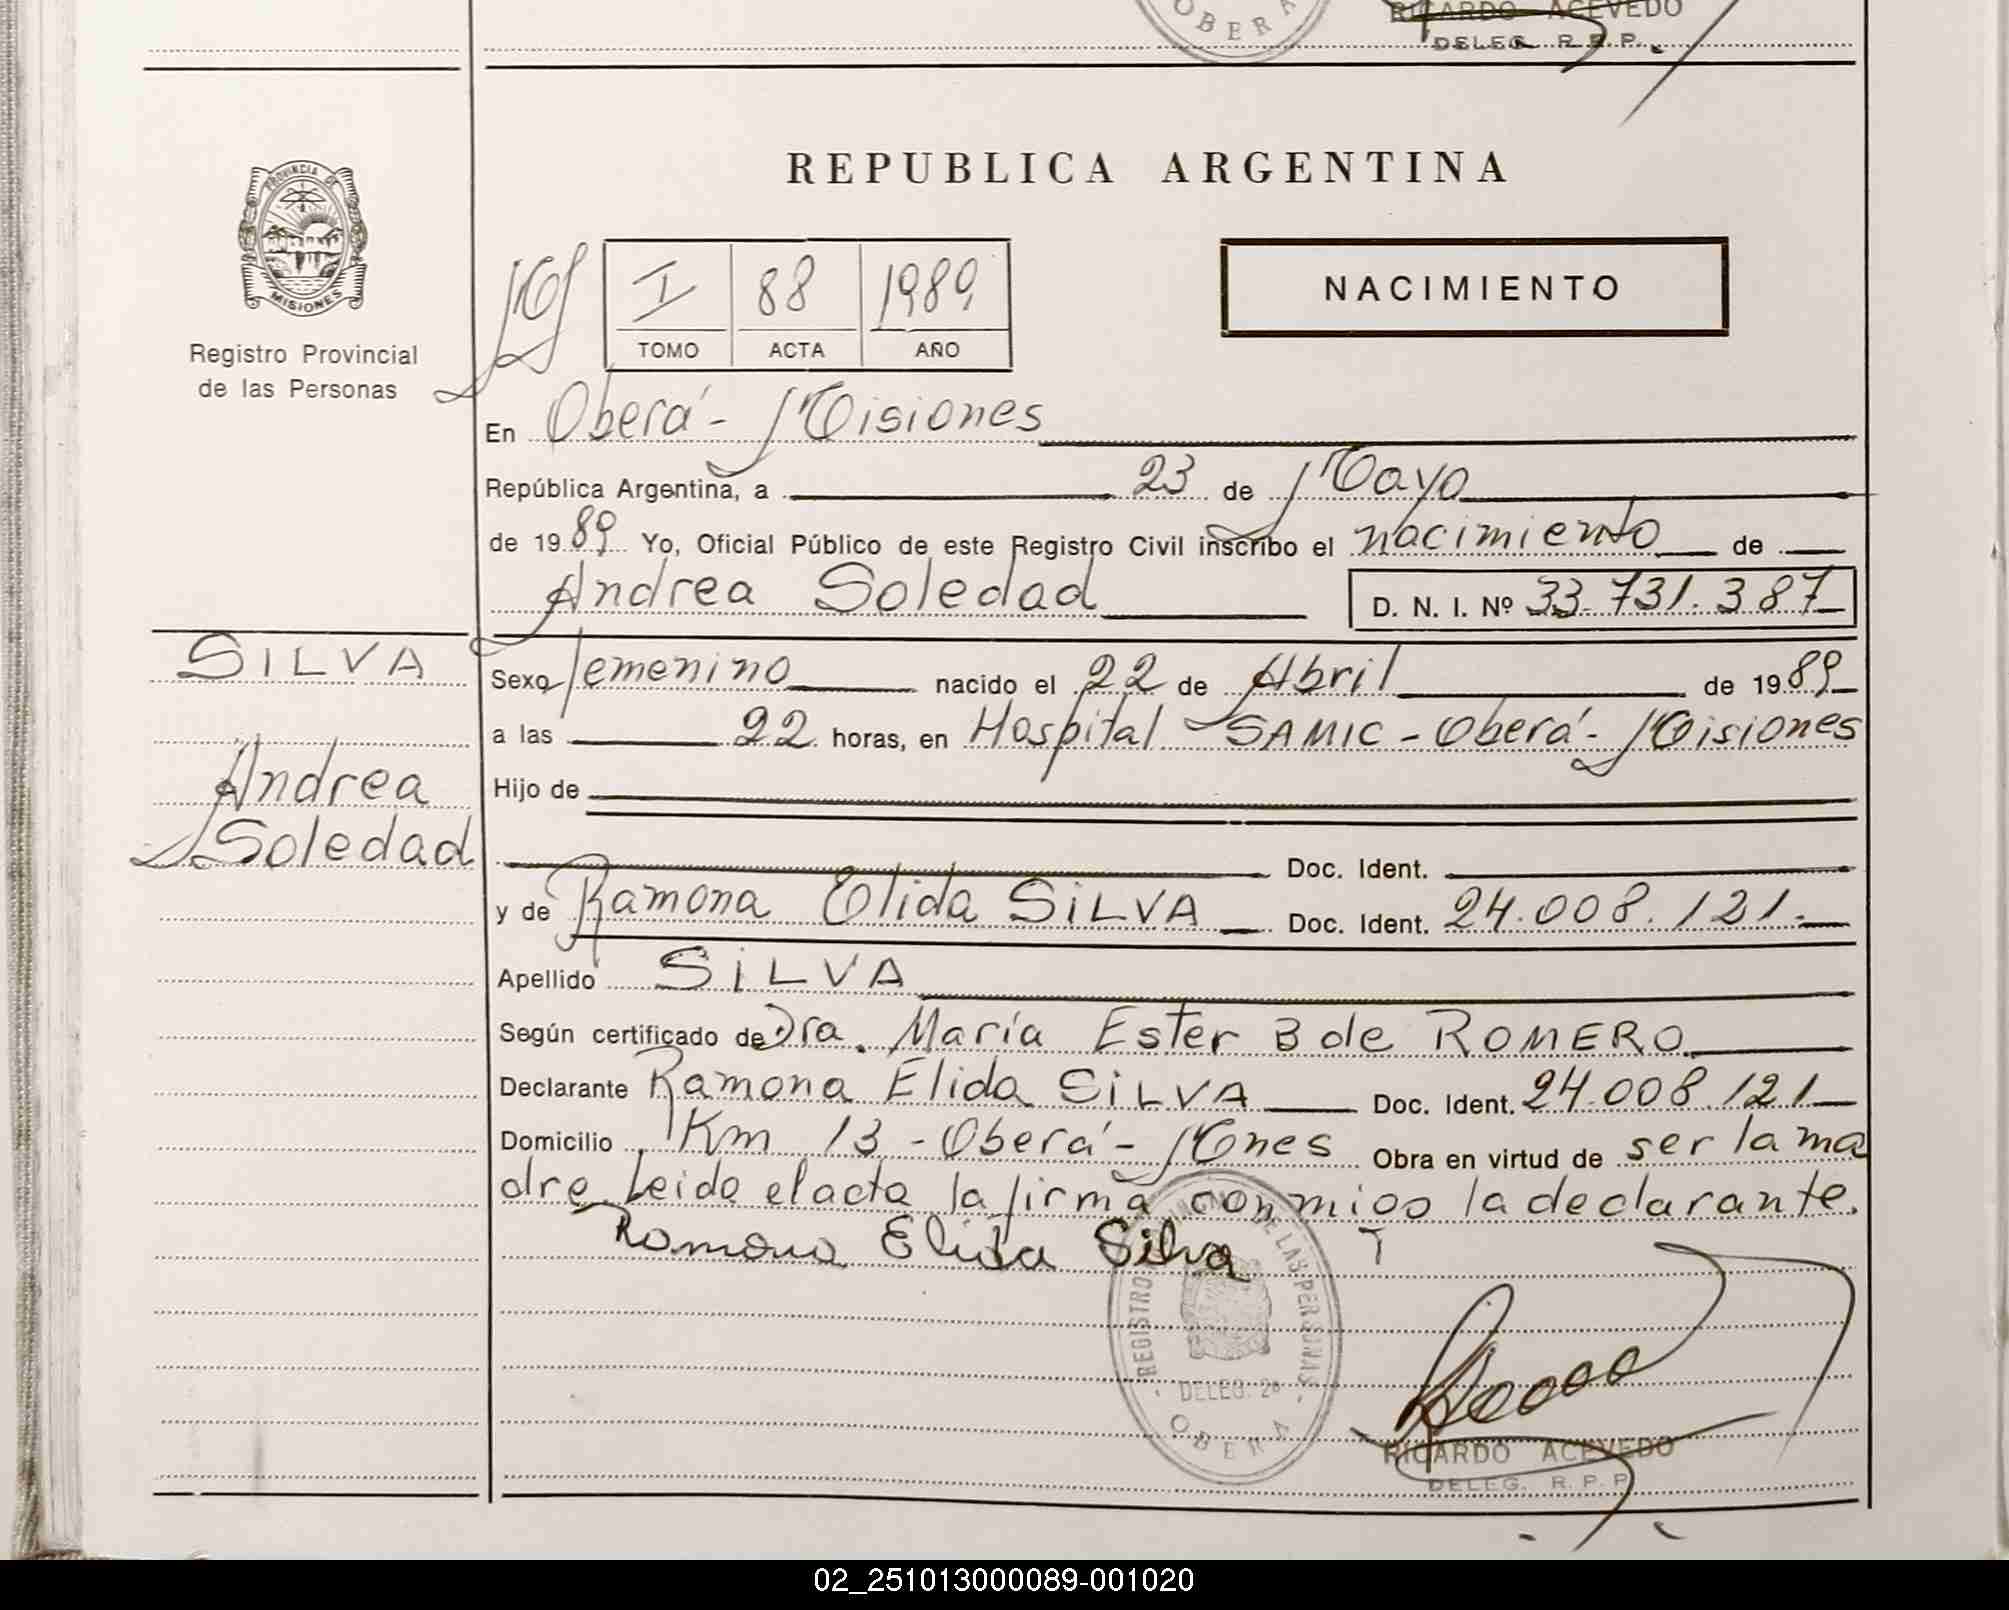 OBERA
RICARDO ACEVEDO
DELEG. R.P.P.
REPUBLICA ARGENTINA
PROVINCIA DE
MISIONES
Registro Provincial
de las Personas
M
I 88 1989
TOMO ACTA AÑO
NACIMIENTO
En Oberá - Misiones
República Argentina, a 23 de Mayo
de 1989 Yo, Oficial Público de este Registro Civil inscribo el nacimiento de
Andrea Soledad D. N. I. Nº 33.731.387
SILVA
Andrea
Soledad
Sexo femenino nacido el 22 de Abril de 1989
a las 22 horas, en Hospital SAMIC - Oberá - Misiones
Hijo de
Doc. Ident.
y de Ramona Elida SiLVA Doc. Ident. 24.008.121.
Apellido SiLVA
Según certificado de Dra. María Ester B de ROMERO
Declarante Ramona Elida SiLVA Doc. Ident. 24.008.121
Domicilio Km 13 - Oberá - Mnes Obra en virtud de ser la ma
dre. Leida el acta la firma conmigo la declarante.
Ramona Elida Silva
REGISTRO PROVINCIAL DE LAS PERSONAS
DELEG. 2ª
OBERA
RICARDO ACEVEDO
DELEG. R. P. P.
02_251013000089-001020